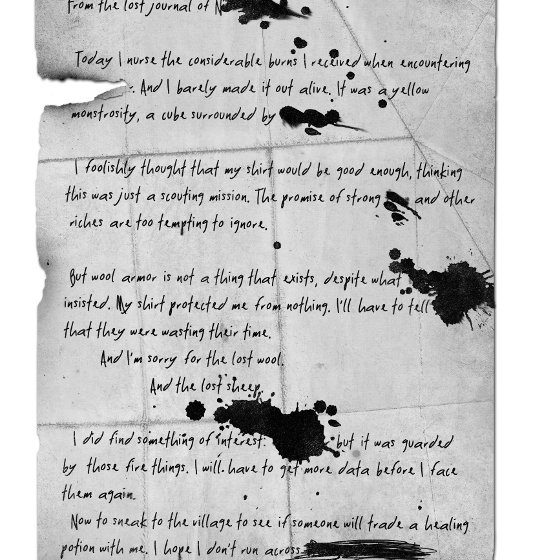 From the lost journal of N
Today I nurse the considerable burns I received when encountering
. And I barely made it out alive. It was a yellow
monstrosity, a cube surrounded by
I foolishly thought that my shirt would be good enough, thinking
this was just a scouting mission. The promise of strong and other
riches are too tempting to ignore.
But wool armor is not a thing that exists, despite what
insisted. My shirt protected me from nothing. I'll have to tell
that they were wasting their time.
And I'm sorry for the lost wool.
And the lost sheep.
I did find something of interest: but it was guarded
by those fire things. I will have to get more data before I face
them again.
Now to sneak to the village to see if someone will trade a healing
potion with me. I hope I don't run across